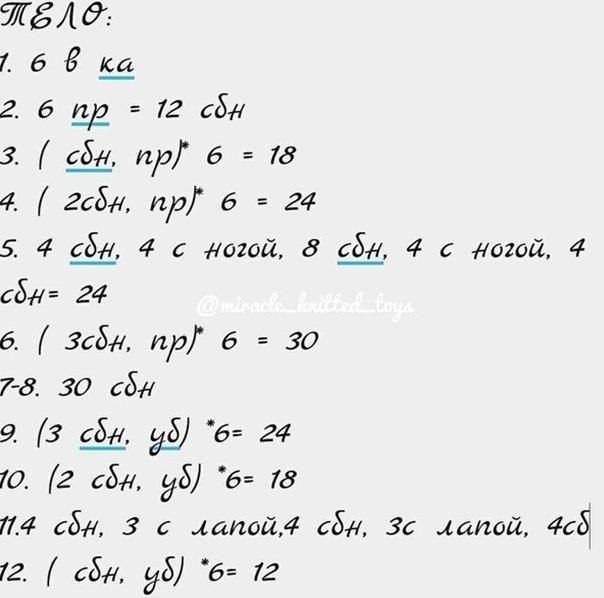 ТЕЛО:
1. 6 в ка
2. 6 пр = 12 сбн
3. ( сбн, пр)* 6 = 18
4. ( 2сбн, пр)* 6 = 24
5. 4 сбн, 4 с ногой, 8 сбн, 4 с ногой, 4
сбн= 24
@miracle_knitted_toys
6. ( 3сбн, пр)* 6 = 30
7-8. 30 сбн
9. (3 сбн, уб) *6= 24
10. (2 сбн, уб) *6= 18
11.4 сбн, 3 с лапой,4 сбн, 3с лапой, 4сб
12. ( сбн, уб) *6= 12